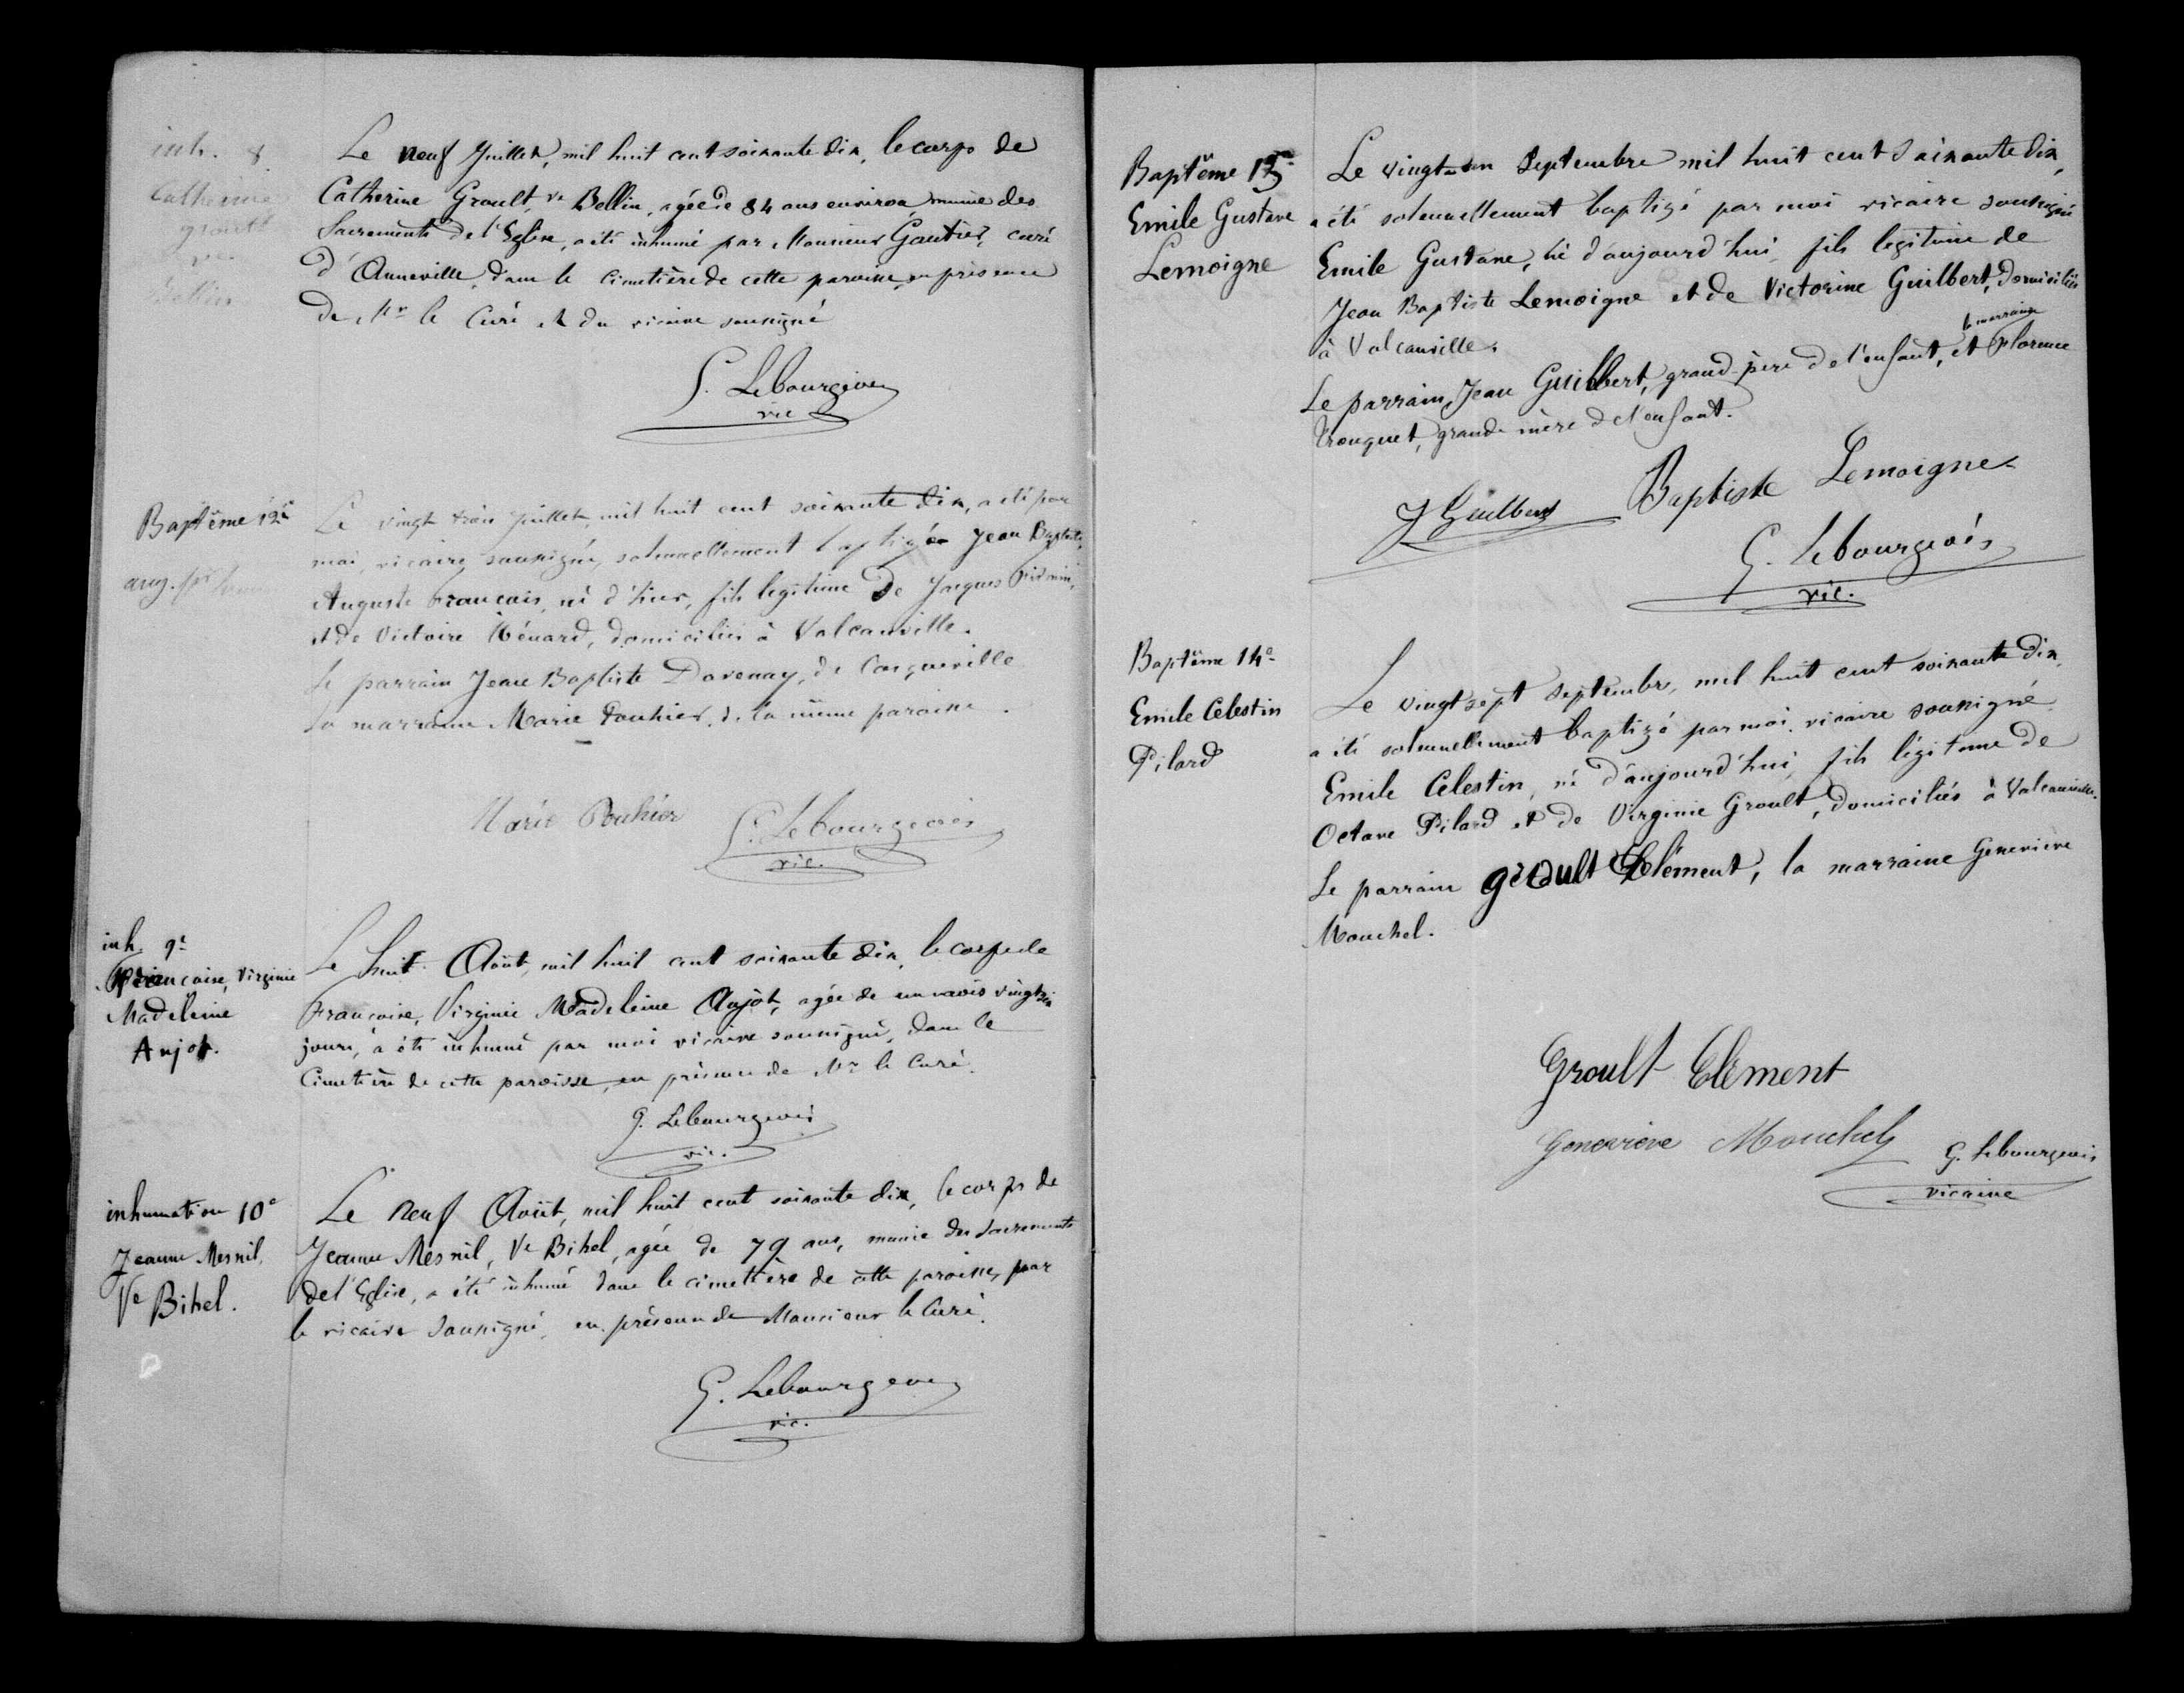 inh. 8
Catherine
groult
ve
Bellin
Le neuf Juillet, mil huit cent soixante dix, le corps de
Catherine Groult, ve Bellin, agée de 84 ans environ, munie des
Sacrements de l'Eglise, a été inhumé par Monsieur Gautier, curé
d'Anneville, dans le cimetière de cette paroisse, en présence
de Mr le Curé et du vicaire soussigné
G. Lebourgeois
vic
Baptême 12e
aug. fr
Le vingt trois Juillet, mil huit cent soixante dix, a été par
moi, vicaire soussigné, solennellement baptisé Jean Baptiste,
Auguste François, né d'hier, fils legitime de Jacques
et de Victoire Ménard, domiciliés à Valcanville.
Le parrain Jean Baptiste Davenay, de Cosqueville
la marraine Marie Pouhier, de la même paroisse.
Marie Pouhier
G. Lebourgeois
vic.
inh. 9e
Françoise, Virginie
Madeleine
Anjot.
Le huit Août, mil huit cent soixante dix, le corps de
Françoise, Virginie Madeleine Anjot, agée de un mois vingt six
jours, a été inhumé par moi vicaire soussigné, dans le
Cimetière de cette paroisse, en présence de Mr le Curé.
G. Lebourgeois
vic.
inhumation 10e
Jeanne Mesnil,
Ve Bihel.
Le neuf Août, mil huit cent soixante dix, le corps de
Jeanne Mesnil, Ve Bihel, agée de 79 ans, munie des Sacrements
de l'Eglise, a été inhumé dans le cimetière de cette paroisse, par
le vicaire soussigné, en présence de Monsieur le Curé.
G. Lebourgeois
vic.
Baptême 13e
Emile Gustave
Lemoigne
Le vingt un Septembre mil huit cent soixante dix,
a été solennellement baptizé par moi vicaire soussigné
Emile Gustave, né d'aujourd'hui, fils legitime de
Jean Baptiste Lemoigne et de Victorine Guilbert, domiciliés
à Valcanville.
la marraine
Le parrain, Jean Guilbert, grand-père de l'enfant, et Florence
Trouquet, grande mère de l'enfant.
J Guilbert
Baptiste Lemoigne
G. Lebourgeois
vic.
Baptême 14e
Emile Celestin
Pilard
Le vingt sept Septembre, mil huit cent soixante dix,
a été solennellement baptizé par moi, vicaire soussigné
Emile Celestin, né d'aujourd'hui, fils légitime de
Octave Pilard et de Virginie Groult, domiciliés à Valcanville.
Le parrain Groult Clément, la marraine Geneviève
Mouchel.
Groult Clément
Geneviève Mouchel
G. Lebourgeois
vicaire